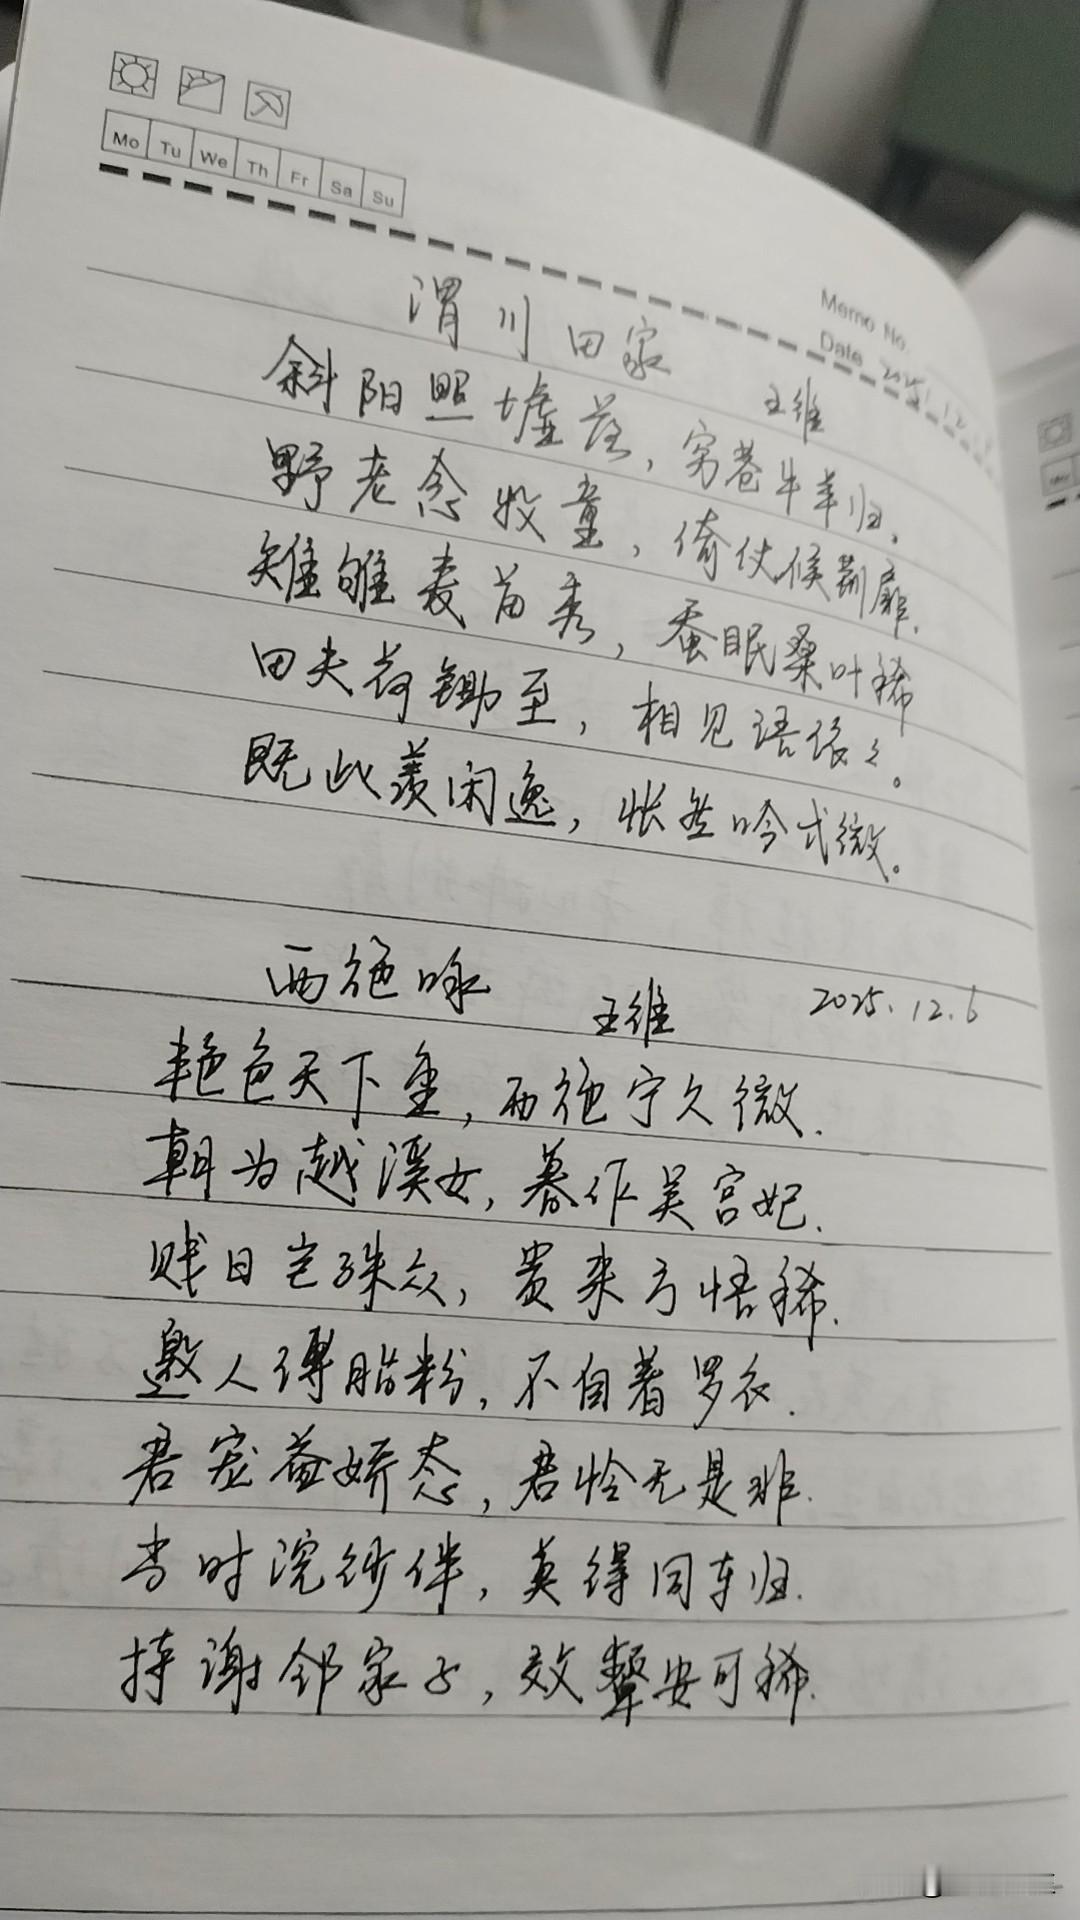 Mo Tu We Th Fr Sa Su
Memo No.
Date 2025.12.
渭川田家
王维
斜阳照墟落，穷巷牛羊归。
野老念牧童，倚仗候荆扉.
雉雊麦苗秀，蚕眠桑叶稀
田夫荷锄至，相见语依々。
既此羡闲逸，怅然吟式微。
西施咏
王维 2025.12.6
艳色天下重，西施宁久微.
朝为越溪女，暮作吴宫妃.
贱日岂殊众，贵来方悟稀.
邀人傅脂粉，不自着罗衣.
君宠益娇态，君怜无是非.
当时浣纱伴，莫得同车归.
持谢邻家子，效颦安可稀.